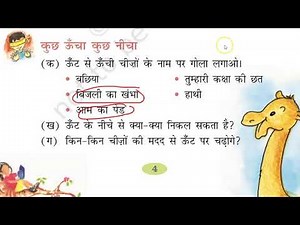 कुछ ऊँचा कुछ नीचा
(क) ऊँट से ऊँची चीज़ों के नाम पर गोला लगाओ।
• बछिया
• तुम्हारी कक्षा की छत
• बिजली का खंभा
• हाथी
• आम का पेड़
(ख) ऊँट के नीचे से क्या-क्या निकल सकता है?
(ग) किन-किन चीज़ों की मदद से ऊँट पर चढ़ोगे?
4